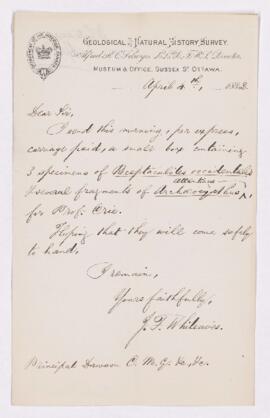 GEOLOGICAL & NATURAL HISTORY SURVEY.
Alfred R.C. Selwyn, LL.D., F.R.S. Director,
MUSEUM & OFFICE, SUSSEX ST OTTAWA.
April 4th, 1882
Dear Sir,
I sent this morning, per express,
carriage paid, a small box containing
3 specimens of Receptaculites occidentalis
& several fragments of Archaeocyathus,
for Prof.
Hoping that they will come safely
to hand,
I remain,
Yours faithfully,
J. F. Whiteaves.
Principal Dawson C. M. G. &c, &c.